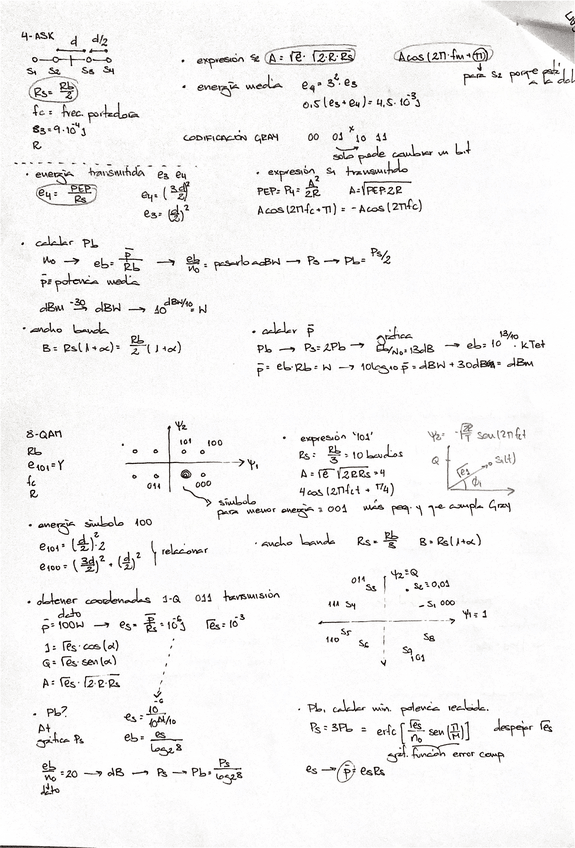 4-ASK
d d/2
S1 S2 S3 S4
Rs = Rb/2
fc = frec. portadora
e3 = 9·10⁻⁴ J
R
· expresión S2 A = √e · √2·R·Rs
Acos(2π·fm+π)
para S2 porque está
· energía media e4 = 3²·e3
0,5(e3+e4) = 4,5·10⁻³ J
CODIFICACIÓN GRAY 00 01 10 11
solo puede cambiar un bit
· energía transmitida e3 e4
e4 = PEP/Rs
e4 = (3d/2)²
e3 = (d/2)²
· expresión S1 transmitido
PEP = P4 = A²/2R A = √PEP·2R
Acos(2πfc+π) = -Acos(2πfc)
· calcular Pb
no → eb = p̄/Rb → eb/no = pasarlo a dBW → Ps → Pb = Ps/2
p̄ = potencia media
dBm -30→ dBW → 10^(dBW/10) = W
· ancho banda
B = Rs(1+α) = Rb/2 (1+α)
· calcular p̄
gráfica
Pb → Ps = 2Pb → Eb/No = 13dB → eb = 10^(13/10) · kTet
p̄ = eb·Rb = W → 10log10 p̄ = dBW + 30dBm = dBm
8-QAM
Rb
e101 = Y
fc
R
Ψ2
101 100
Ψ1
011 000
símbolo
para menor energía = 001 más peq. y que cumpla Gray
· expresión '101'
Rs = Rb/3 = 10 baudios
A = √e √2RRs = 4
4cos(2πfct + π/4)
Ψ2 = -√2R/T sen(2πfct
Q
√es S1(t)
φ1
I
· energía símbolo 100
e101 = (d/2)²·2
e100 = (3d/2)² + (d/2)²
relacionar
· ancho banda Rs = Rb/3 B = Rs(1+α)
· obtener coordenadas I-Q 011 transmisión
dato
p̄ = 100W → es = p̄/Rs = 10⁻⁶ J √es = 10⁻³
I = √es · cos(α)
Q = √es · sen(α)
A = √es · √2·R·Rs
Ψ2 = Q
011 S3 S2 = 0,01
111 S4 S1 000
Ψ1 = I
110 S5 S6 S8
S7 101
· Pb?
At
gráfica Ps
es = 10⁻⁶/10^(At/10)
eb = es/log28
eb/no = 20 → dB → Ps → Pb = Ps/log28
dato
· Pb, calcular min. potencia recibida.
Ps = 3Pb = erfc[√es/no sen(π/M)] despejar √es
gráf. función error comp
es → p̄ = esRs